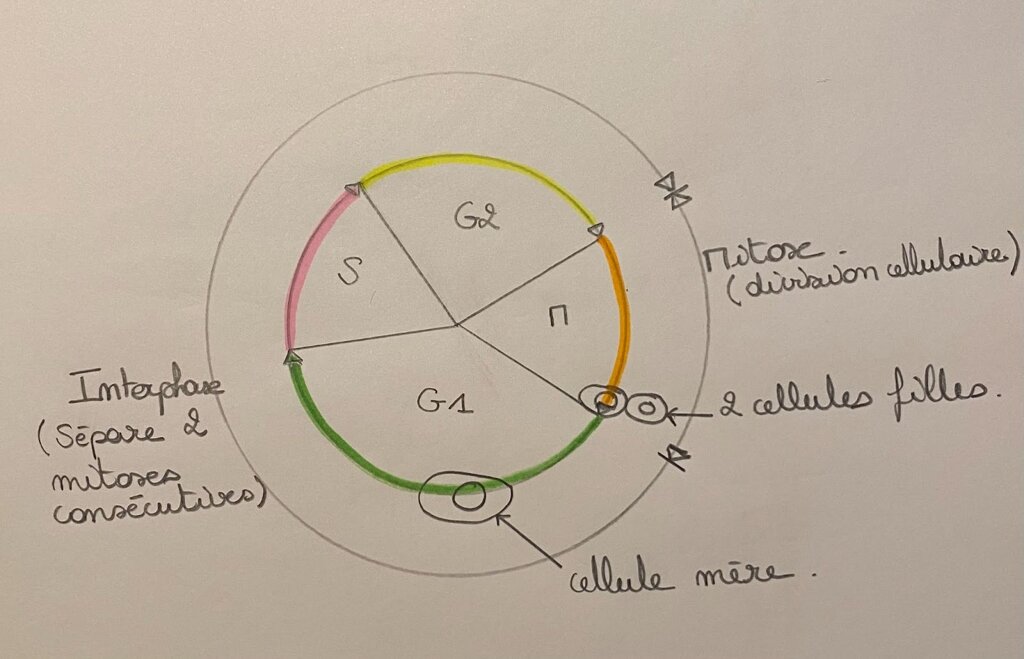 G2
S
M
Mitose.
(division cellulaire)
Interphase
(Sépare 2
mitoses
consécutives)
G1
2 cellules filles.
cellule mère.